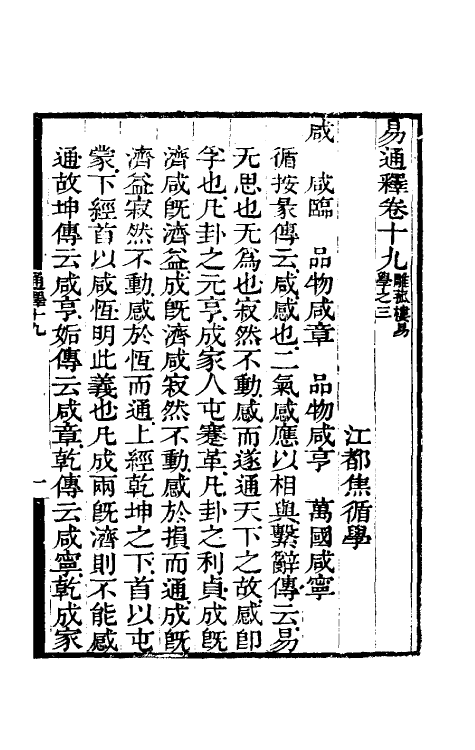 易通釋卷十九 雕菰樓易學之三
江都焦循學
咸 咸臨 品物咸章 品物咸亨 萬國咸寧
循按彖傳云咸感也二氣感應以相與繫辭傳云易
无思也无為也寂然不動感而遂通天下之故感即
孚也凡卦之元亨成家人屯蹇革凡卦之利貞成既
濟咸既濟益成既濟咸寂然不動感於損而通成既
濟益寂然不動感於恆而通上經乾坤之下首以屯
蒙下經首以咸恆明此義也凡成兩既濟則不能感
通故坤傳云咸亨姤傳云咸章乾傳云咸寧乾成家
通釋十九 一